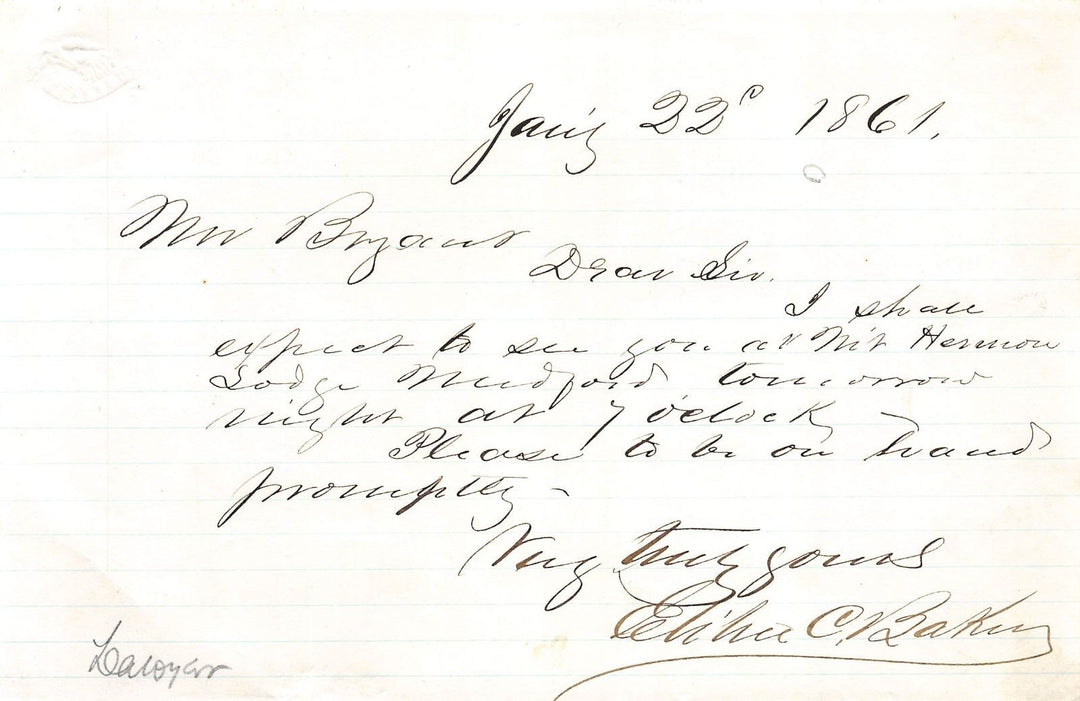 Jan'y 22d 1861.
Mr Bryant
Dear Sir.
I shall
expect to see you at Mt Hermon
Lodge Medford tomorrow
night at 7 o'clock –
Please to be on hand
promptly –
Very truly yours
Elihu C. Baker
Lawyer